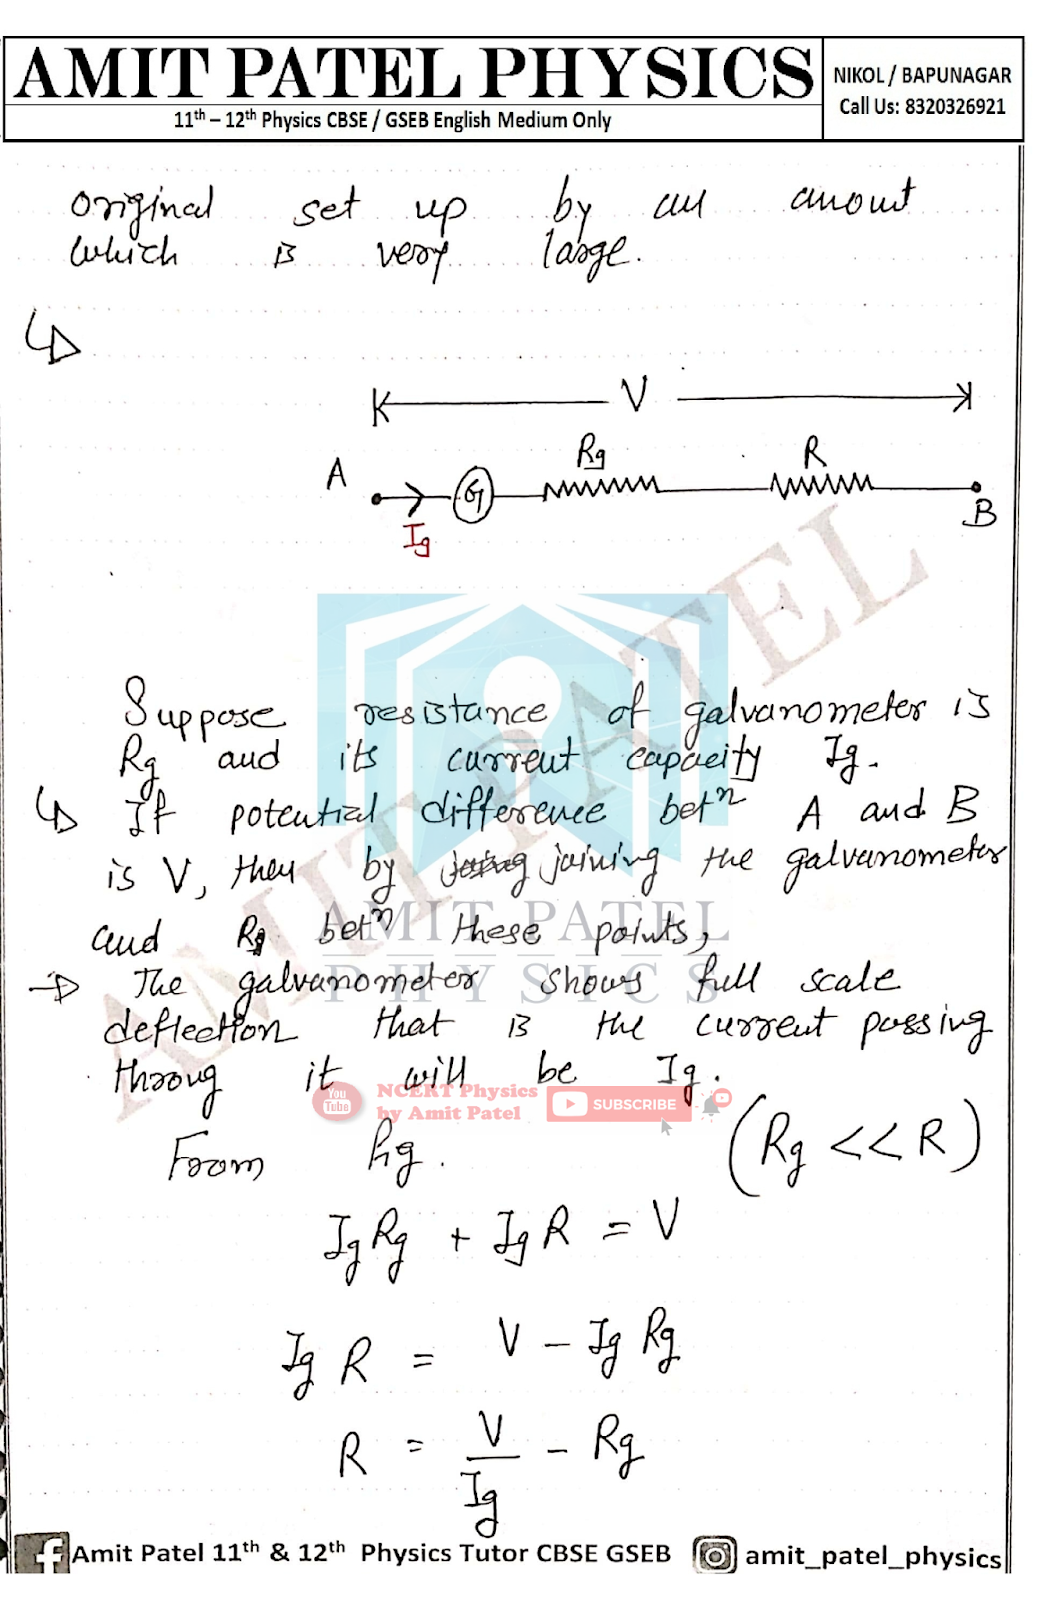 AMIT PATEL PHYSICS
11th – 12th Physics CBSE / GSEB English Medium Only
NIKOL / BAPUNAGAR
Call Us: 8320326921
original set up by an amout
which is very large.
V
A Rg R
G
Ig B
Suppose resistance of galvanometer is
Rg and its current capacity Ig.
If potential difference betn A and B
is V, then by joining the galvanometer
and Rg betn these points,
The galvanometer shows full scale
deflection that is the current passing
throug it will be Ig.
From hg. (Rg << R)
IgRg + IgR = V
IgR = V - IgRg
R = V/Ig - Rg
AMIT PATEL
AMIT PATEL
PHYSICS
You Tube
NCERT Physics
by Amit Patel
SUBSCRIBE
Amit Patel 11th & 12th Physics Tutor CBSE GSEB
amit_patel_physics